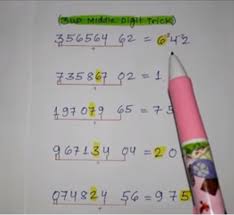 3up Middle Digit Trick
356564 62 = 642
735867 02 = 1
197079 65 = 75
967134 04 = 20
074824 56 = 975